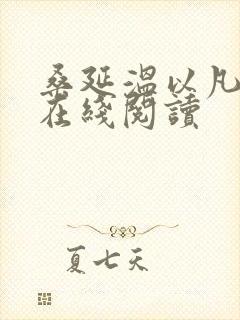 桑延温以凡
在綫閱讀
夏七天